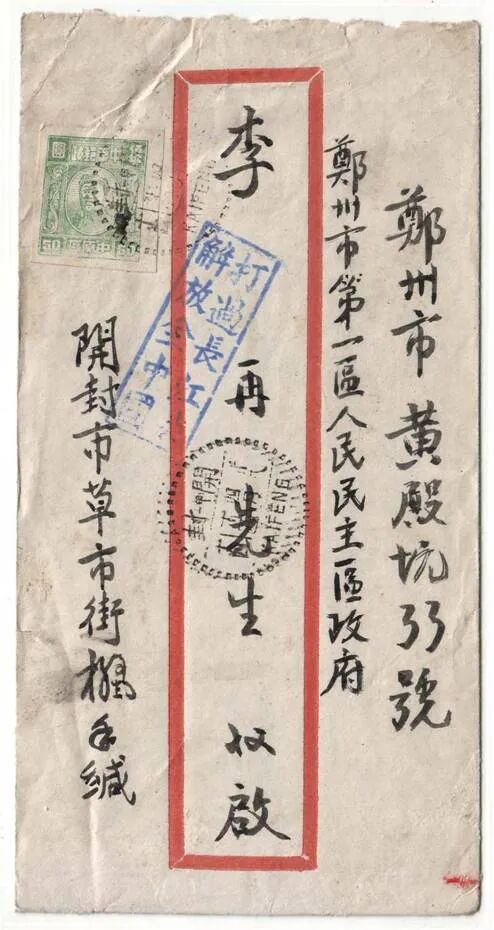 鄭州市黄殿坑號
鄭州市第一區人民民主區政府
李再先生收啟
打過長江去
解放全中國
KAIFENG
開封
KAIFENG
開封市草市街緘
圓
50